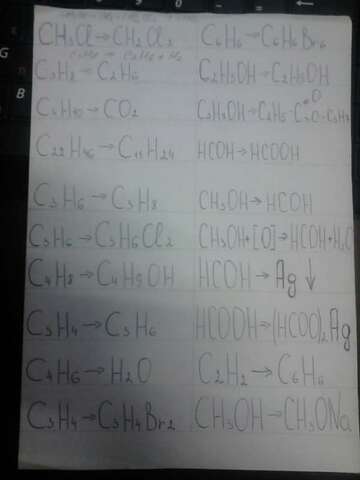 CH₃Cl→CH₂Cl₂
C₆H₆→C₆H₆Br₆
C₃H₈→C₃H₆
C₂H₅OH→C₂H₅OH
C₄H₁₀→CO₂
HCOH→HCOOH
C₂₂H₄₆→C₁₁H₂₄
C₃H₆→C₃H₈
CH₃OH→HCOH
C₃H₆→C₃H₆Cl₂
CH₃OH+[O]→HCOH+H₂O
C₄H₈→C₄H₉OH
HCOH→Ag↓
C₃H₄→C₃H₆
HCOOH→(HCOO)₂Ag
C₄H₆→H₂O
C₂H₂→C₆H₆
C₃H₄→C₃H₄Br₂
CH₃OH→CH₃ONa